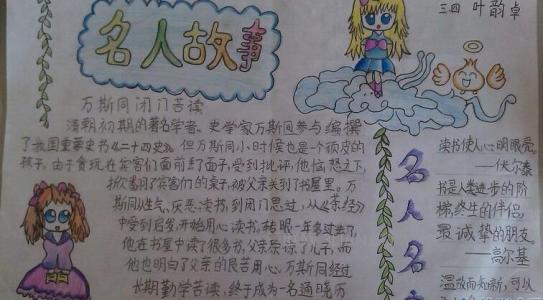 三四 叶韵卓
名人故事
万斯同闭门苦读
清朝初期的著名学者、史学家万斯同参与编撰
了我国重要史书《二十四史》。但万斯同小时候也是一个顽皮的
孩子。由于贪玩在宾客们面前丢了面子,受到批评,他恼怒之下,
掀翻了宾客们的桌子,被父亲关到了书屋里。万
斯同从生气,厌恶读书,到闭门思过,从《茶经》
中受到启发,开始用心读书。转眼一年多过去了,
他在书屋中读了很多书,父亲原谅了儿子,而
他也明白了父亲的良苦用心。万斯同经过
长期勤学苦读,终于成为一名通晓历
名人名
读书使人心明眼亮。
——伏尔泰
书是人类进步的阶
梯,终生的伴侣,
最诚挚的朋友。
——高尔基
温故而知新,可以